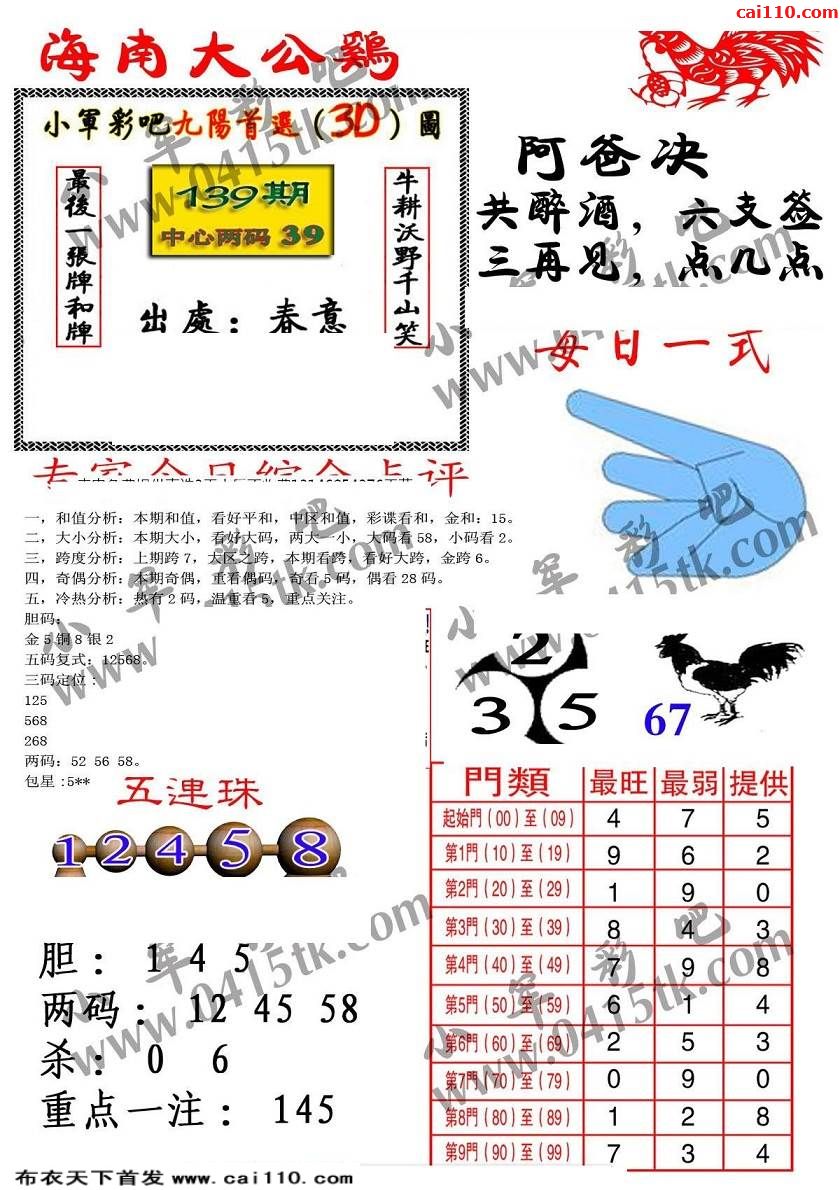 cai110.com
海南大公鷄
小軍彩吧九陽首選（3D）圖
139期
中心两码 39
最後一張牌和牌
牛耕沃野千山笑
出處：春意
阿爸决
共醉酒，六支签
三再见，点几点
每日一式
专家今日综合点评
一，和值分析：本期和值，看好平和，中区和值，彩谍看和，金和：15。
二，大小分析：本期大小，看好大码，两大一小，大码看 58，小码看 2。
三，跨度分析：上期跨 7，大区之跨，本期看跨，看好大跨，金跨 6。
四，奇偶分析：本期奇偶，重看偶码，奇看 5 码，偶看 28 码。
五，冷热分析：热有 2 码，温重看 5，重点关注。
胆码：
金 5 铜 8 银 2
五码复式：12568。
三码定位：
125
568
268
两码：52 56 58。
包星:5**
2
3 5
67
五連珠
1 2 4 5 8
胆： 1 4 5
两码： 12 45 58
杀： 0 6
重点一注： 145
門類 最旺 最弱 提供
起始門（00）至（09） 4 7 5
第1門（10）至（19） 9 6 2
第2門（20）至（29） 1 9 0
第3門（30）至（39） 8 4 3
第4門（40）至（49） 7 9 8
第5門（50）至（59） 6 1 4
第6門（60）至（69） 2 5 3
第7門（70）至（79） 0 9 0
第8門（80）至（89） 1 2 8
第9門（90）至（99） 7 3 4
小军彩吧
www.0415tk.com
小军彩吧
www.0415tk.com
小军彩吧
www.0415tk.com
小军彩吧
www.0415tk.com
小军彩吧
www.0415tk.com
小军彩吧
www.0415tk.com
布衣天下首发 www.cai110.com